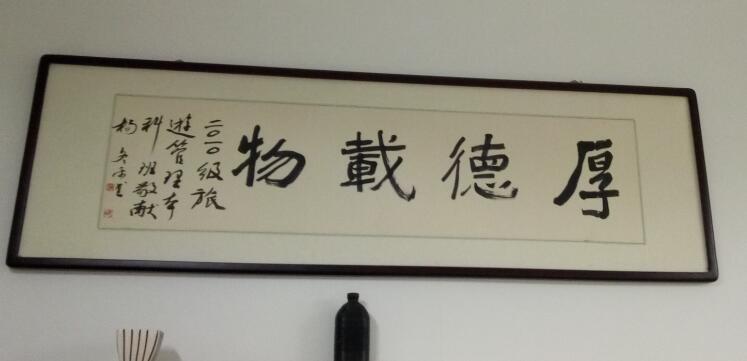 厚德載物
二〇一〇级旅
遊管理本
科班敬献
杨